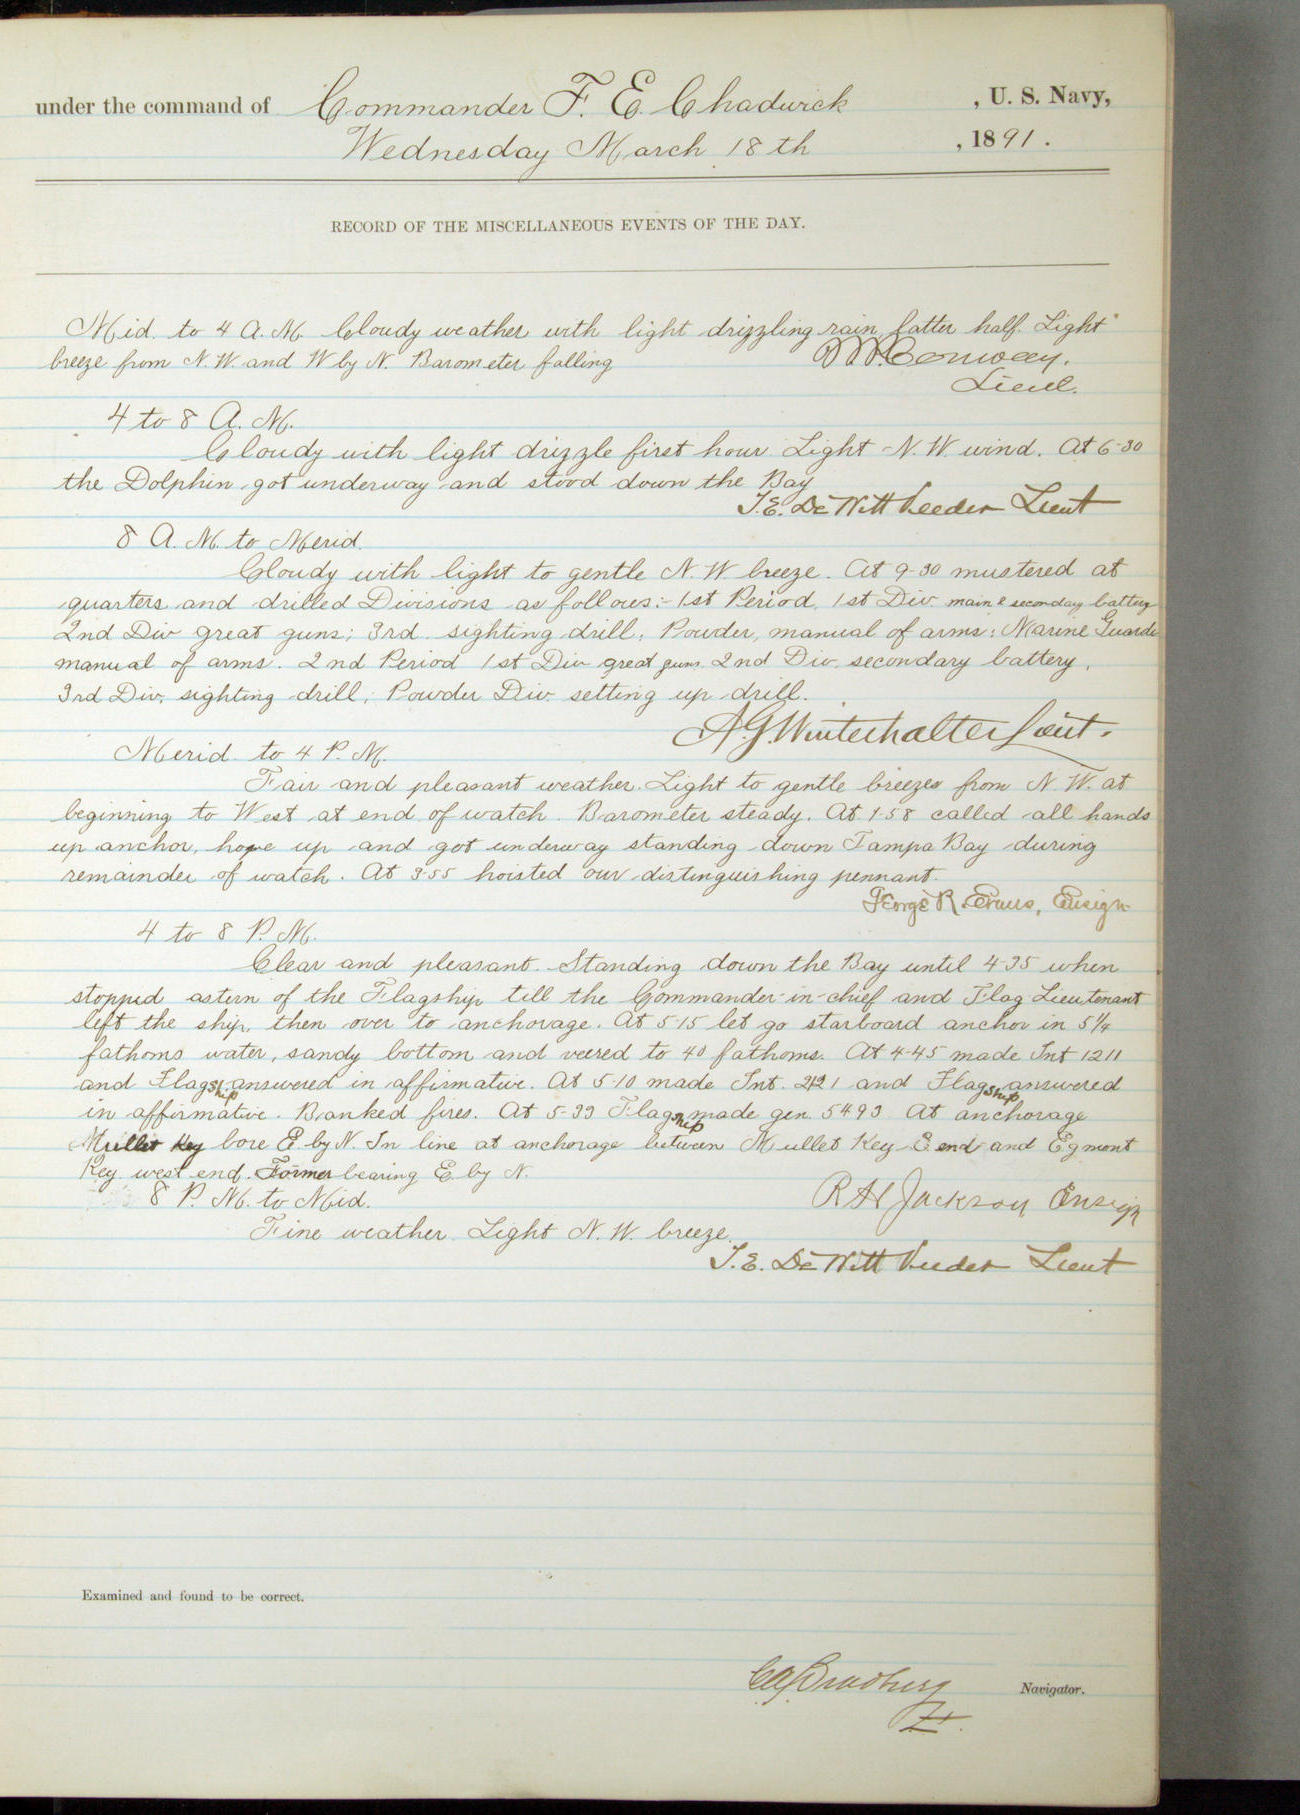 under the command of Commander F. E. Chadwick , U. S. Navy,
Wednesday March 18th , 1891.
RECORD OF THE MISCELLANEOUS EVENTS OF THE DAY.
Mid. to 4 A. M. Cloudy weather with light drizzling rain latter half. Light
breeze from N. W. and W by N. Barometer falling
Conway.
Lieut.
4 to 8 A. M.
Cloudy with light drizzle first hour. Light N. W. wind. At 6-30
the Dolphin got underway and stood down the Bay
T. E. DeWitt Veeder Lieut
8 A. M. to Merid.
Cloudy with light to gentle N. W breeze. At 9-30 mustered at
quarters and drilled Divisions as follows:- 1st Period, 1st Div. main & seconday battery
2nd Div great guns; 3rd. sighting drill; Powder, manual of arms; Marine Guard
manual of arms. 2nd Period 1st Div great guns 2nd Div. secondary battery,
3rd Div. sighting drill; Powder Div. setting up drill.
A. G. Winterhalter Lieut.
Merid. to 4 P. M.
Fair and pleasant weather. Light to gentle breezes from N. W. at
beginning to West at end of watch. Barometer steady. At 1-58 called all hands
up anchor, hove up and got underway standing down Tampa Bay during
remainder of watch. At 3-55 hoisted our distinguishing pennant.
George R. Evans, Ensign
4 to 8 P. M.
Clear and pleasant. Standing down the Bay until 4-35 when
stopped astern of the Flagship till the Commander-in-chief and Flag Lieutenant
left the ship, then over to anchorage. At 5-15 let go starboard anchor in 5 1/4
fathoms water, sandy bottom and veered to 40 fathoms. At 4-45 made Int 1211
and Flagship answered in affirmative. At 5-10 made Int. 2121 and Flagship answered
in affirmative. Banked fires. At 5-33 Flagship made gen. 5493 At anchorage
Mullet Key bore E. by N. In line at anchorage between Mullet Key E end and Egmont
Key west end. Former bearing E by N.
8 P. M. to Mid. R H Jackson Ensign
Fine weather. Light N. W. breeze.
T. E. DeWitt Veeder Lieut
Examined and found to be correct.
Navigator.